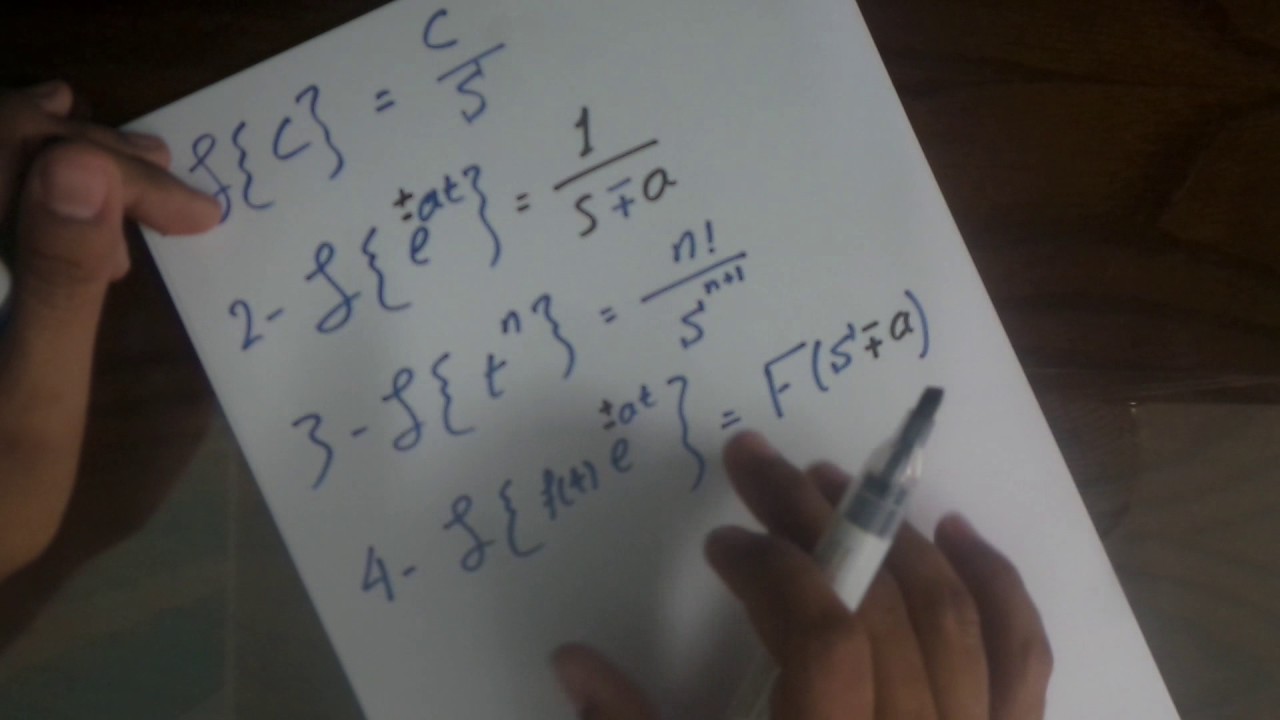 ℒ{c} = c/s
2- ℒ{e^±at} = 1/(s∓a)
3- ℒ{t^n} = n!/s^(n+1)
4- ℒ{f(t) e^±at} = F(s∓a)